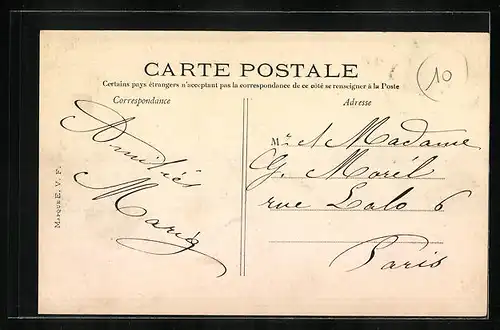 CARTE POSTALE
Certains pays étrangers n'acceptant pas la correspondance de ce côté se renseigner à la Poste
Correspondance
Adresse
10
Amitiés
Marie
Mr et Madame
G. Morél
rue Lalo 6
Paris
MARQUE E. V. F.